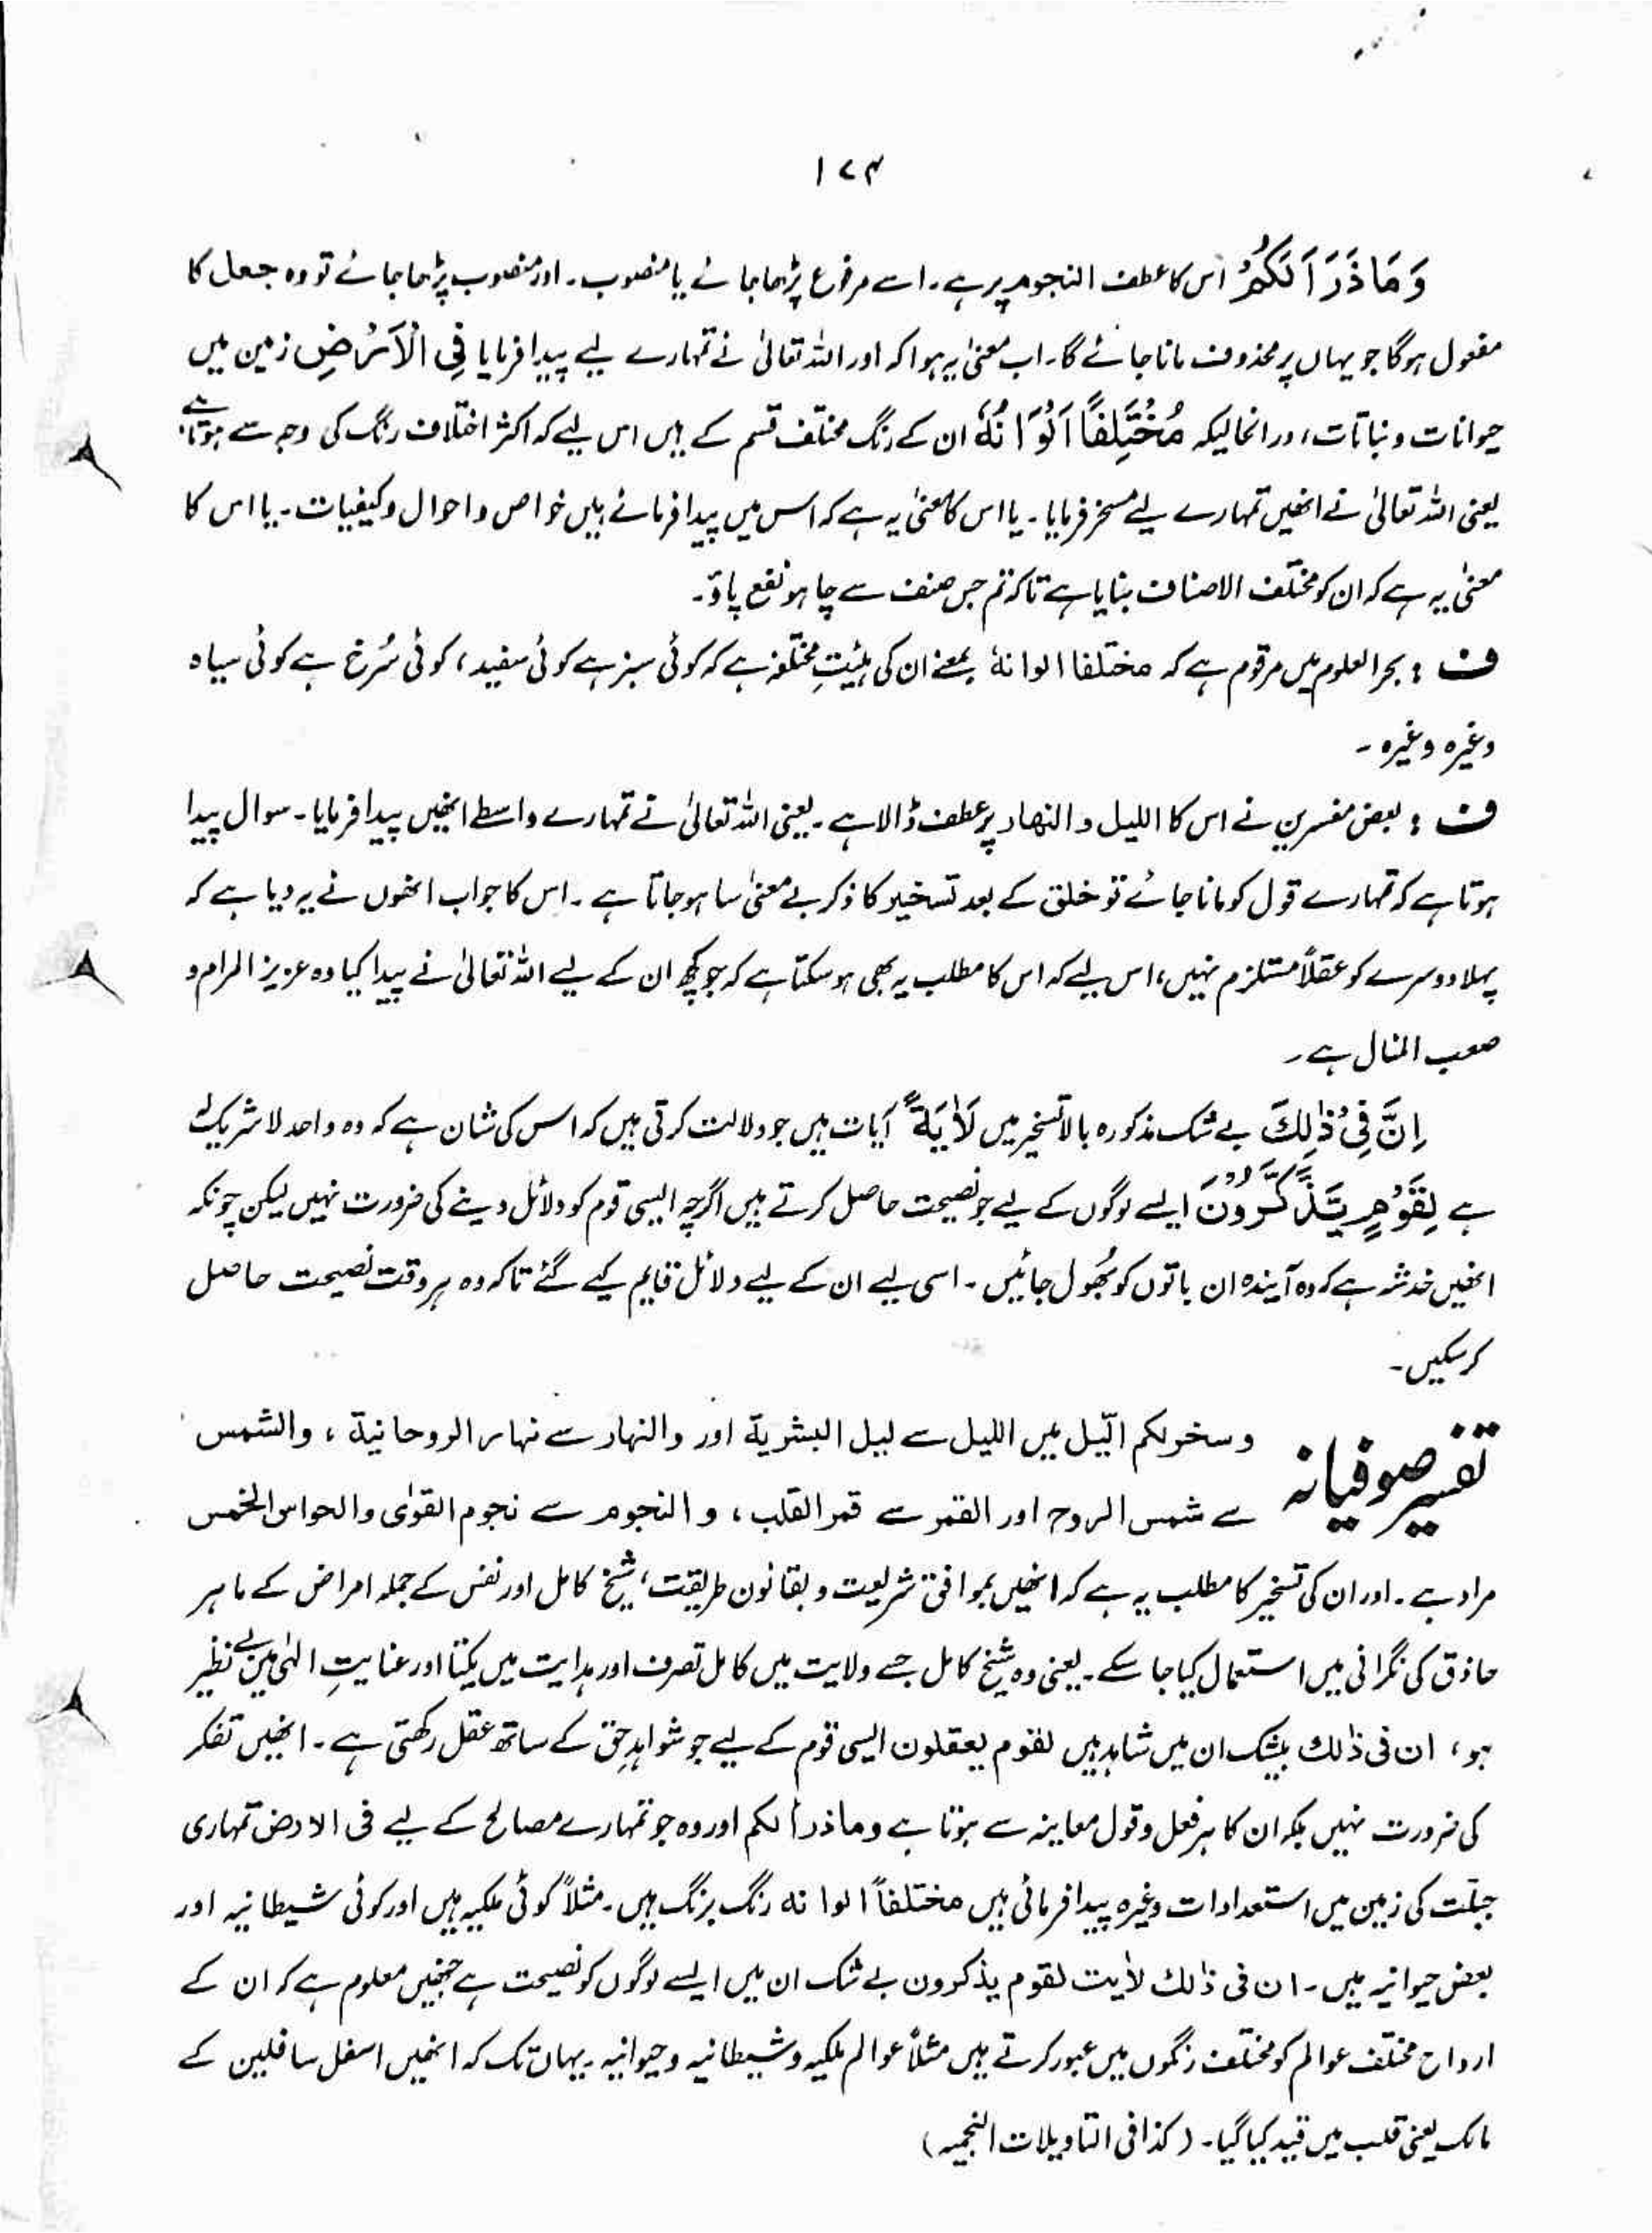 ۱۷۴
وَمَا ذَرَاَ لَكُمْ اس کا عطف النجوم پر ہے۔ اسے مرفوع پڑھا جائے یا منصوب۔ اور منصوب پڑھا جائے تو وہ جعل کا
مفعول ہوگا جو یہاں پر محذوف مانا جائے گا۔ اب معنیٰ یہ ہوا کہ اور اللہ تعالیٰ نے تمہارے لیے پیدا فرمایا فِی الْاَرْضِ زمین میں
حیوانات و نباتات، درانحالیکہ مُخْتَلِفًا اَلْوَانُهٗ ان کے رنگ مختلف قسم کے ہیں اس لیے کہ اکثر اختلاف رنگ کی وجہ سے ہوتا ہے
یعنی اللہ تعالیٰ نے انھیں تمہارے لیے مسخر فرمایا۔ یا اس کا معنیٰ یہ ہے کہ اس میں پیدا فرمائے ہیں خواص و احوال و کیفیات۔ یا اس کا
معنیٰ یہ ہے کہ ان کو مختلف الاصناف بنایا ہے تاکہ تم جس صنف سے چاہو نفع پاؤ۔
ف : بحر العلوم میں مرقوم ہے کہ مختلفا الوانهٗ بمعنے ان کی ہیئتِ مختلفہ ہے کہ کوئی سبز ہے کوئی سفید، کوئی سُرخ ہے کوئی سیاہ
وغیرہ وغیرہ۔
ف : بعض مفسرین نے اس کا اللیل والنهار پر عطف ڈالا ہے۔ یعنی اللہ تعالیٰ نے تمہارے واسطے انھیں پیدا فرمایا۔ سوال پیدا
ہوتا ہے کہ تمہارے قول کو مانا جائے تو خلق کے بعد تسخیر کا ذکر بے معنیٰ سا ہو جاتا ہے۔ اس کا جواب انھوں نے یہ دیا ہے کہ
پہلا دوسرے کو عقلاً مستلزم نہیں، اس لیے کہ اس کا مطلب یہ بھی ہوسکتا ہے کہ جو کچھ ان کے لیے اللہ تعالیٰ نے پیدا کیا وہ عزیز المرام و
صعب المنال ہے۔
اِنَّ فِیْ ذٰلِكَ بے شک مذکورہ بالا تسخیر میں لَاٰیَةً آیات ہیں جو دلالت کرتی ہیں کہ اس کی شان ہے کہ وہ واحد لا شریک لہٗ
ہے لِقَوْمٍ یَّذَّكَّرُوْنَ ایسے لوگوں کے لیے جو نصیحت حاصل کرتے ہیں اگرچہ ایسی قوم کو دلائل دینے کی ضرورت نہیں لیکن چونکہ
انھیں خدشہ ہے کہ وہ آیندہ ان باتوں کو بُھول جائیں۔ اسی لیے ان کے لیے دلائل قایم کیے گئے تاکہ وہ ہر وقت نصیحت حاصل
کرسکیں۔
تفسیر صوفیانہ وسخرلکم الّیل میں اللیل سے لیل البشریة اور والنهار سے نہار الروحانیة ، والشمس
سے شمس الروح اور القمر سے قمر القلب ، و النجوم سے نجوم القوٰی والحواس الخمس
مراد ہے۔ اور ان کی تسخیر کا مطلب یہ ہے کہ انھیں بموافق شریعت و بقانون طریقت ، شیخ کامل اور نفس کے جملہ امراض کے ماہر
حاذق کی نگرانی میں استعمال کیا جا سکے۔ یعنی وہ شیخ کامل جسے ولایت میں کامل تصرف اور ہدایت میں یکتا اور عنایتِ الٰہی میں بے نظیر
ہو، ان فی ذٰلك بیشک ان میں شاہد ہیں لقوم یعقلون ایسی قوم کے لیے جو شواہدِ حق کے ساتھ عقل رکھتی ہے۔ انھیں تفکر
کی ضرورت نہیں بلکہ ان کا ہر فعل و قول معاینہ سے ہوتا ہے وما ذرأ لکم اور وہ جو تمہارے مصالح کے لیے فی الارض تمہاری
جبلّت کی زمین میں استعدادات وغیرہ پیدا فرمائی ہیں مختلفاً الوانه رنگ برنگ ہیں۔ مثلاً کوئی ملکیہ ہیں اور کوئی شیطانیہ اور
بعض حیوانیہ ہیں۔ ان فی ذٰلك لاٰیت لقوم یذکرون بے شک ان میں ایسے لوگوں کو نصیحت ہے جنھیں معلوم ہے کہ ان کے
ارواح مختلف عوالم کو مختلف رنگوں میں عبور کرتے ہیں مثلاً عوالم ملکیہ و شیطانیہ و حیوانیہ۔ یہاں تک کہ انھیں اسفل سافلین کے
مالک یعنی قلب میں قید کیا گیا۔ (کذا فی التاویلات النجمیہ)